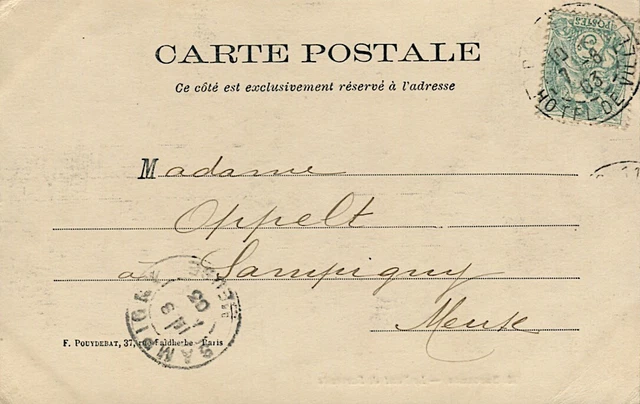 CARTE POSTALE
Ce côté est exclusivement réservé à l'adresse
HOTEL DE VILLE
03
POSTES
Madame
Oppelt
à Sampigny
Meuse
SAMPIGNY
MEUSE
03
F. POUYDEBAT, 37, rue Faidherbe - Paris